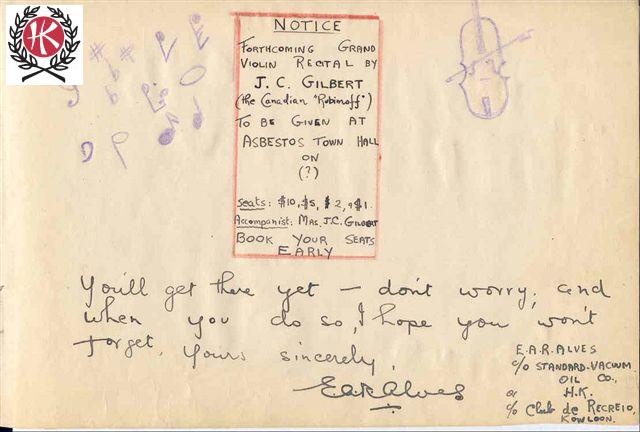 HK
NOTICE
FORTHCOMING GRAND
VIOLIN RECTAL BY
J. C. GILBERT
(the Canadian "Rubinoff")
TO BE GIVEN AT
ASBESTOS TOWN HALL
ON
(?)
Seats: $10, $5, $2, & $1.
Accompanist: MRS. J.C. GILBERT
BOOK YOUR SEATS
EARLY
You'll get there yet — don't worry; and
when you do so, I hope you won't
forget. Yours sincerely,
E.A.R. Alves
E.A.R. ALVES
c/o STANDARD-VACUUM
OIL CO.,
or H.K.
c/o Club de Recreio,
KOWLOON.